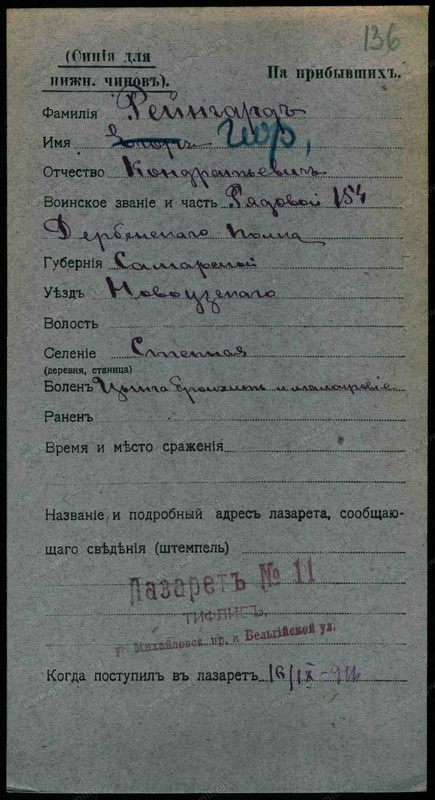 136
(Синія для
нижн. чиновъ).
На прибывшихъ.
Фамилія Рейнгардъ
Имя Егоръ Геор,
Отчество Кондратьевичъ
Воинское званіе и часть Рядовой 154
Дербенскаго полка
Губернія Самарской
Уѣздъ Новоузенскаго
Волость
Селеніе Степная
(деревня, станица)
Боленъ Цынга бронхитъ и малокровіе
Раненъ
Время и мѣсто сраженія
Названіе и подробный адресъ лазарета, сообщаю-
щаго свѣдѣнія (штемпель)
Лазаретъ № 11
ТИФЛИСЪ,
уг. Михайловск. пр. и Бельгійской ул.
Когда поступилъ въ лазаретъ 16/IX-